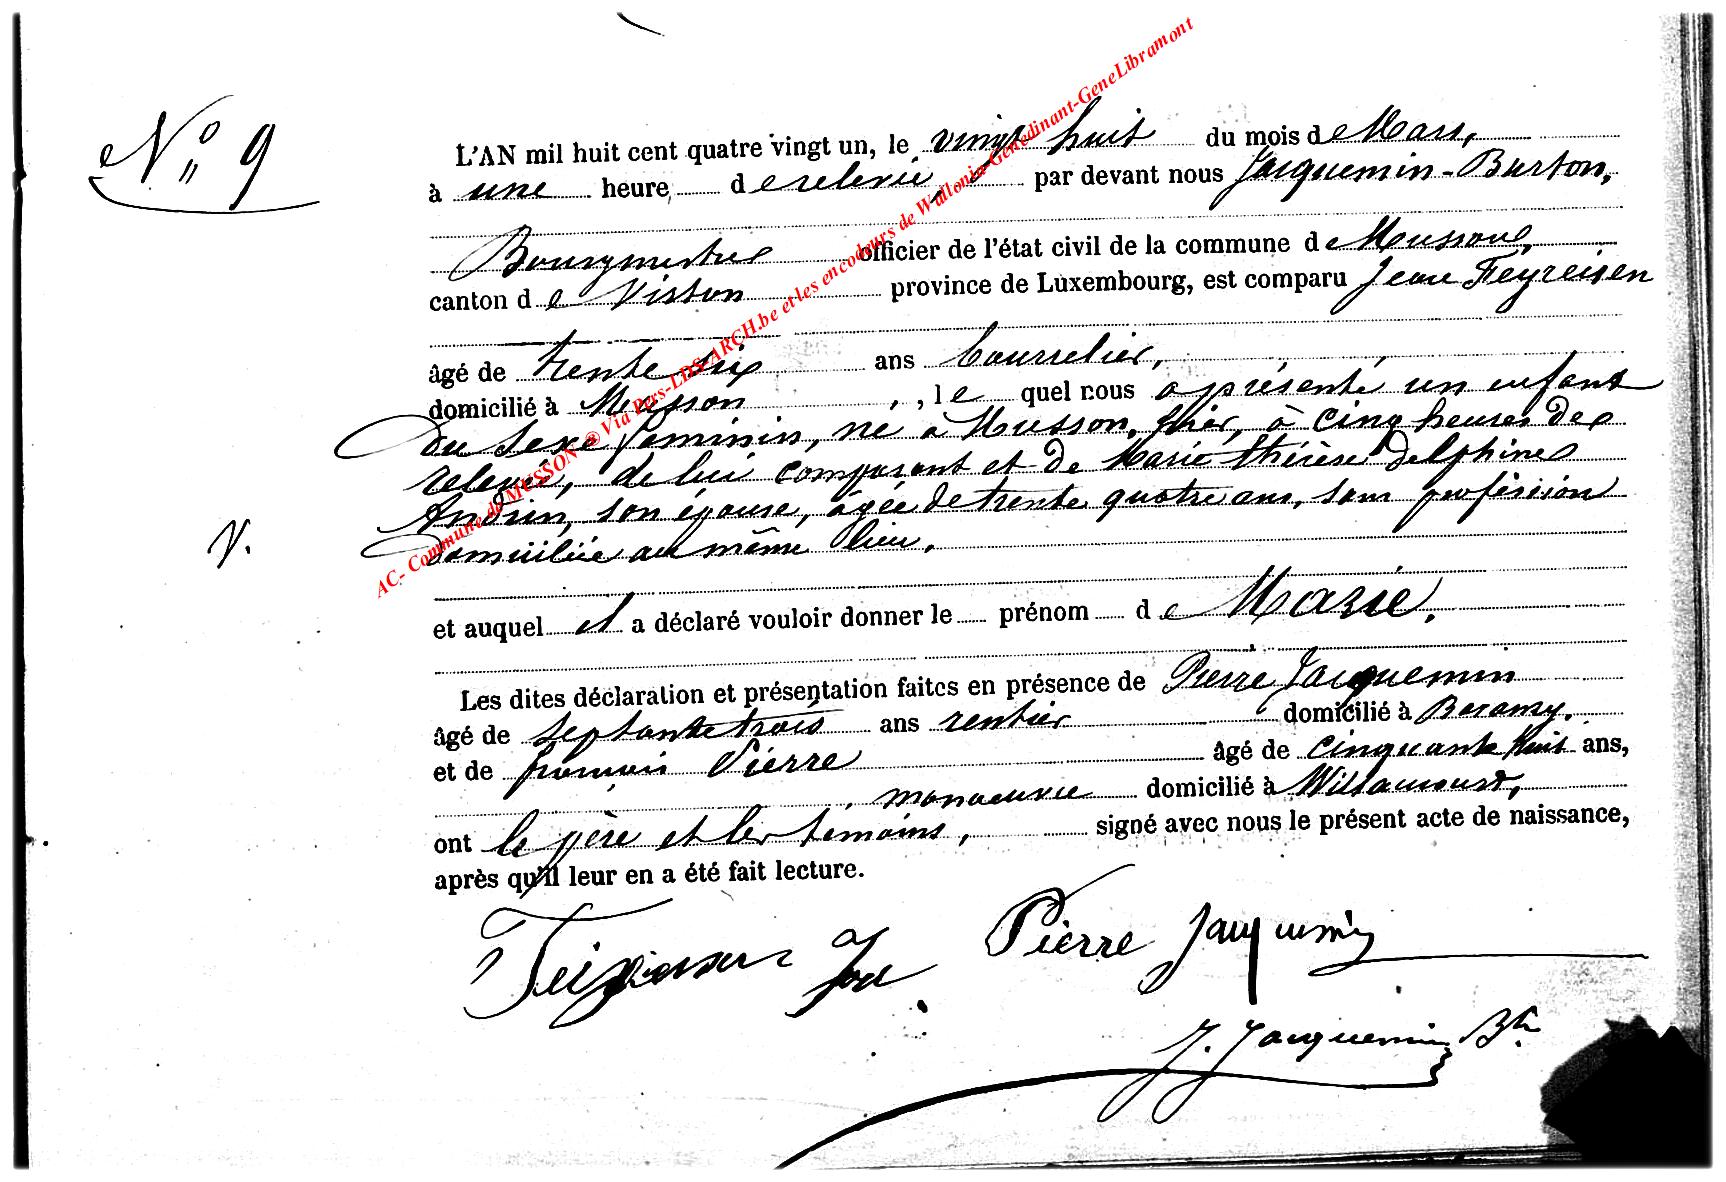 N° 9
L'AN mil huit cent quatre vingt un, le vingt huit du mois de Mars,
à une heure de relevée, par devant nous Jacquemin-Burton,
Bourgmestre officier de l'état civil de la commune de Musson,
canton de Virton province de Luxembourg, est comparu Jean Feyreisen
âgé de trente six ans bourrelier,
domicilié à Musson, le quel nous a présenté un enfant
du sexe feminin, né à Musson, hier, à cinq heures de
relevée, de lui comparant et de Marie Thérèse Delphine
son épouse, âgée de trente quatre ans, sans profession
domiciliée au même lieu.
V.
et auquel il a déclaré vouloir donner le prénom de Marie.
Les dites déclaration et présentation faites en présence de Pierre Jacquemin
âgé de septante trois ans rentier domicilié à Baranzy.
et de Pierre âgé de cinquante huit ans,
manoeuvre domicilié à Willancourt,
ont le père et les témoins, signé avec nous le présent acte de naissance,
après qu'il leur en a été fait lecture.
Pierre Jacquemin
J. Jacquemin Bth
AC- Commune de MUSSON @ Via Pers-LDS-ARCH.be et les encodeurs de Wallonia-Genedinant-GeneLibramont